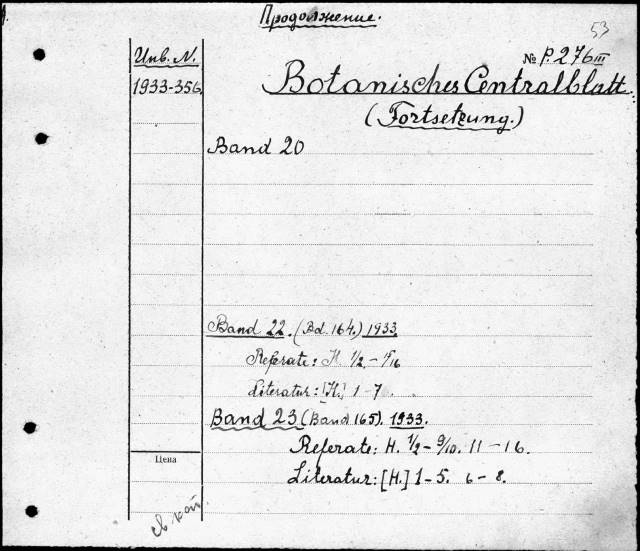 Продолжение.
53
Инв. N.
№ P.276 III
1933-356
Botanisches Centralblatt.
(Fortsetzung.)
Band 20
Band 22. (Bd. 164.) 1933.
Referate: H. 1/2 –
Literatur: [H.] 1-7.
Band 23 (Band 165). 1933.
Referate: H. 1/2 – 9/10. 11 – 16.
Literatur: [H.] 1-5. 6-8.
Цена